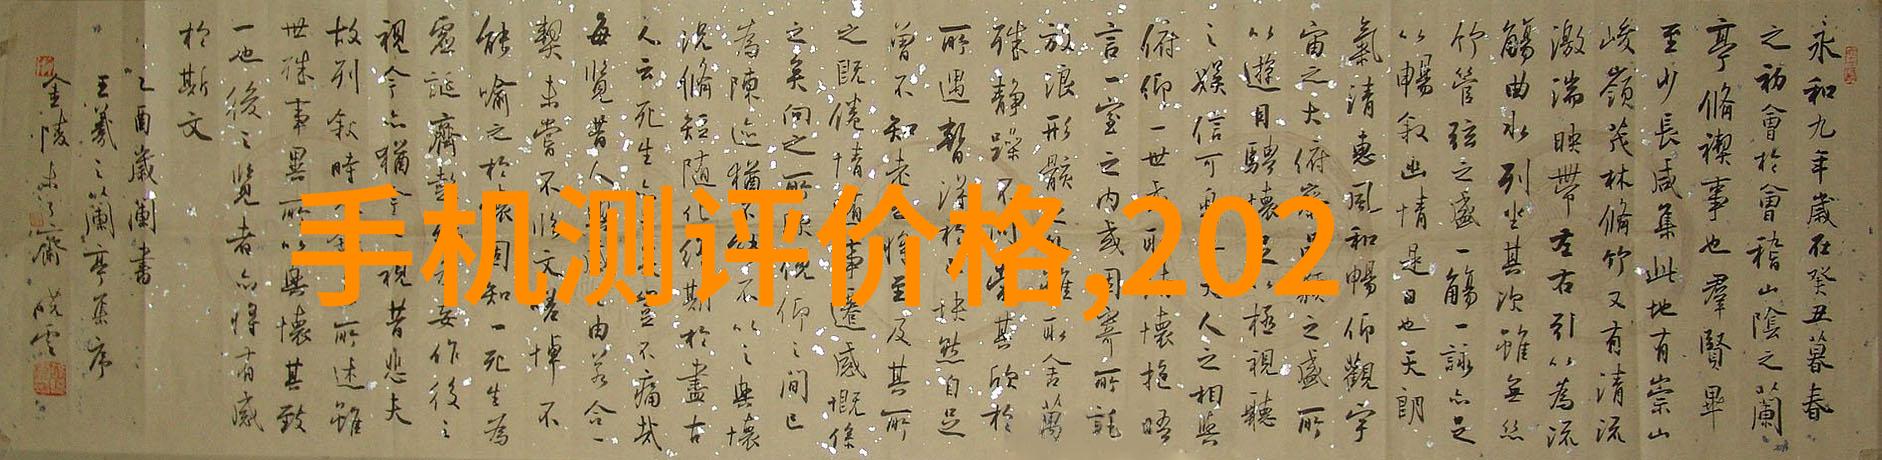 手机测评价格,202
永和九年歲在癸丑暮春
之初會於會稽山陰之蘭
亭脩禊事也羣賢畢
至少長咸集此地有崇山
峻嶺茂林脩竹又有清流
激湍映帶左右引以為流
觴曲水列坐其次雖無絲
竹管弦之盛一觴一詠亦足
以暢敘幽情是日也天朗
氣清惠風和暢仰觀宇
宙之大俯察品類之盛所
以遊目騁懷足以極視聽
之娛信可樂也夫人之相與
俯仰一世或取諸懷抱晤
言一室之內或因寄所託
放浪形骸之外雖取舍萬
殊靜躁不同當其欣於
所遇暫得於己快然自足
曾不知老之將至及其所
之既倦情隨事遷感慨係
之矣向之所欣俛仰之間已
為陳迹猶不能不以之興懷
況脩短隨化終期於盡古
人云死生亦大矣豈不痛哉
每覽昔人興感之由若合一
契未嘗不臨文嗟悼不
能喻之於懷固知一死生為
虛誕齊彭殤為妄作後之
視今亦猶今之視昔悲夫
故列敘時人錄其所述雖
世殊事異所以興懷其致
一也後之覽者亦將有感
於斯文
乙酉歲蘭書
王羲之蘭亭集序
金陵